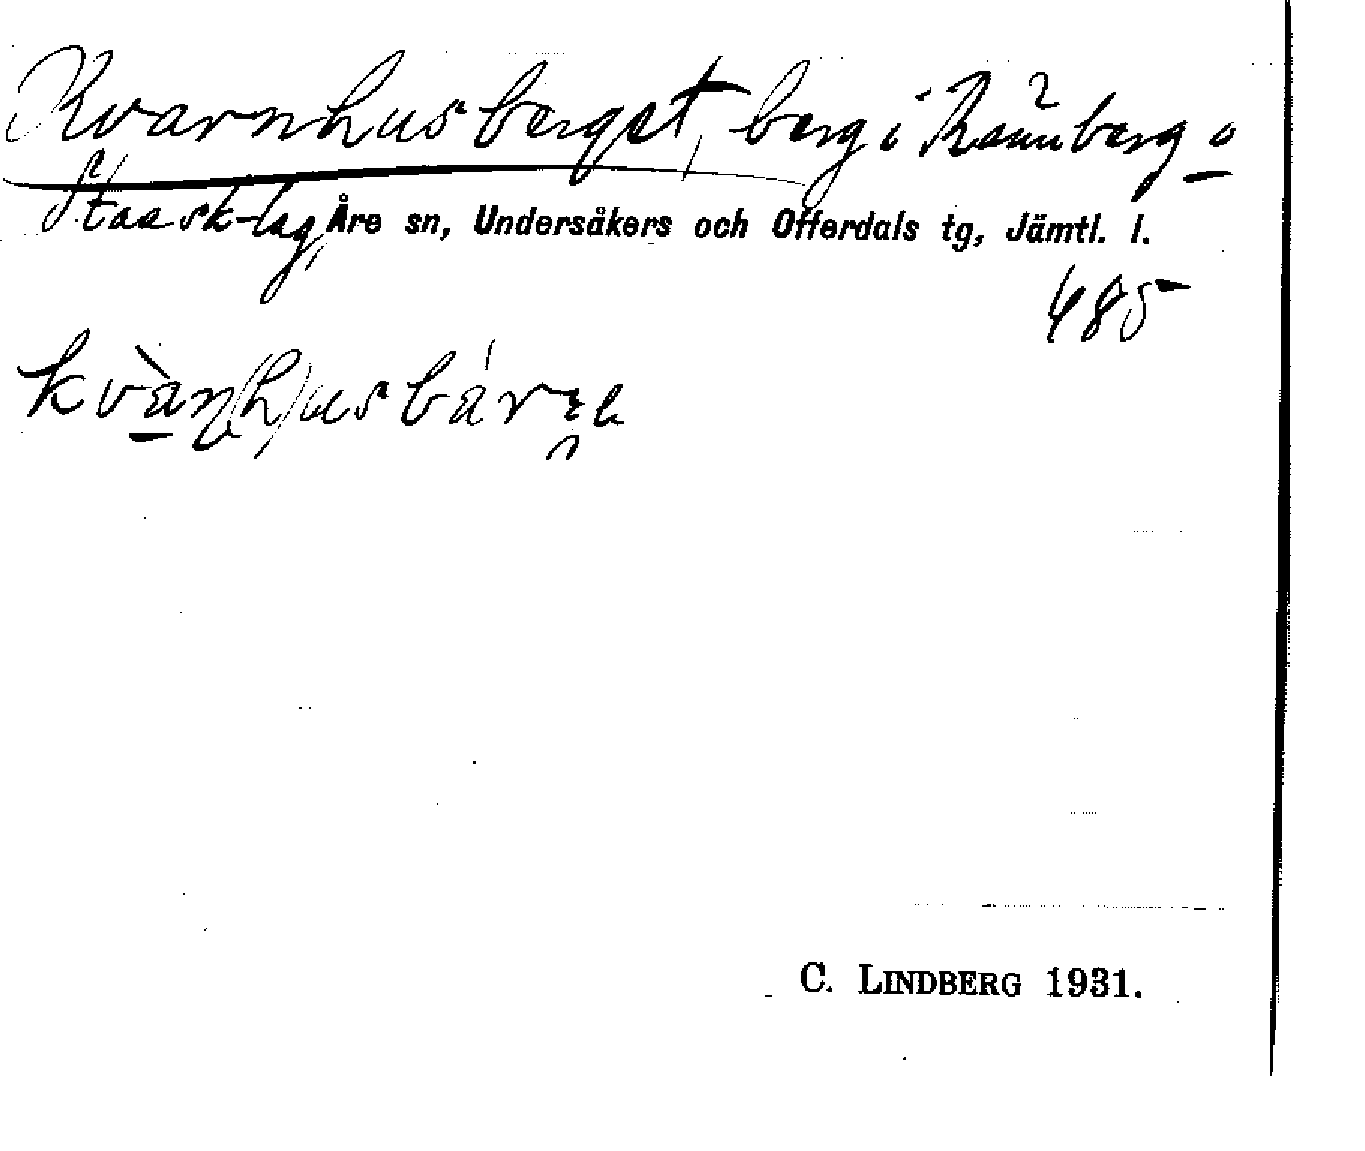 Kvarnhusberget, berg i Rännberg o
Staa sk-lag, Åre sn, Undersåkers och Offerdals tg, Jämtl. l.
485
C. LINDBERG 1931.